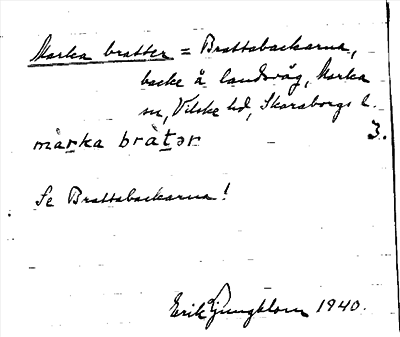 Marka bratter = Brattabackarna,
backe å landsväg, Marka
sn, Vilske hd, Skaraborgs l.
3.
màrka bràtər
Se Brattabackarna!
Erik Ljungblom 1940.